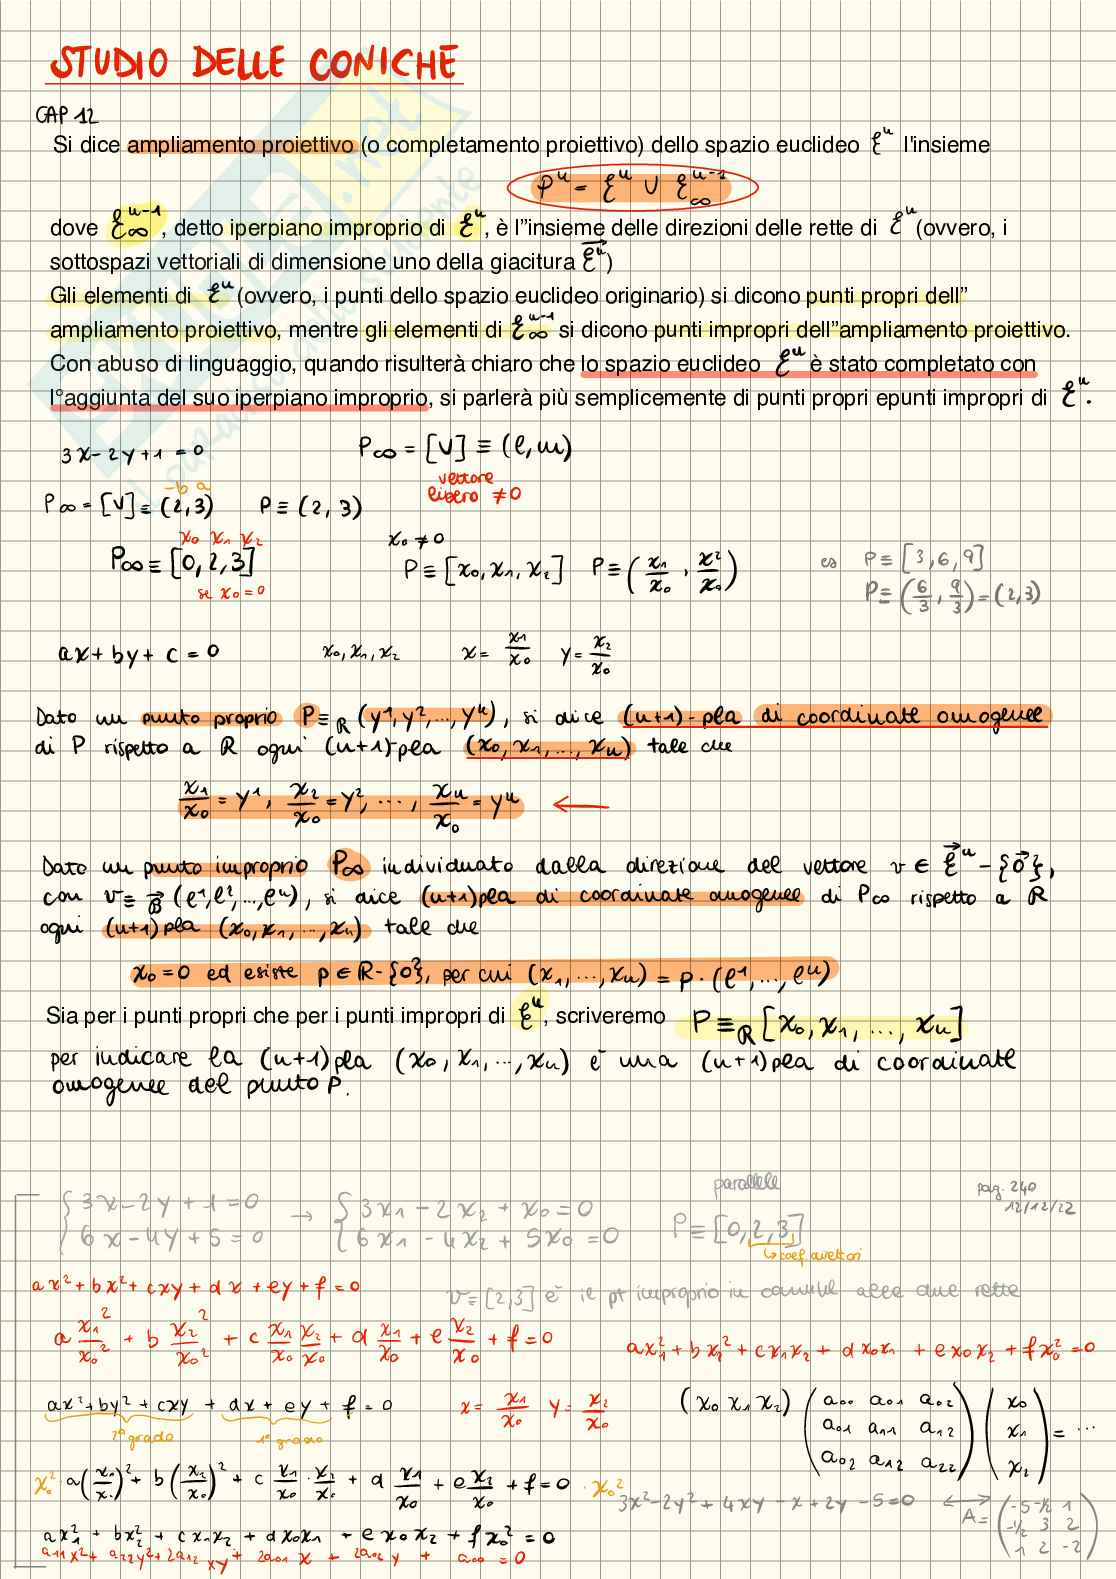 STUDIO DELLE CONICHE
CAP 12
Si dice ampliamento proiettivo (o completamento proiettivo) dello spazio euclideo ℰⁿ l'insieme
Pⁿ = ℰⁿ ∪ ℰ∞ⁿ⁻¹
dove ℰ∞ⁿ⁻¹, detto iperpiano improprio di ℰⁿ, è l''insieme delle direzioni delle rette di ℰⁿ (ovvero, i
sottospazi vettoriali di dimensione uno della giacitura ℰⁿ)
Gli elementi di ℰⁿ (ovvero, i punti dello spazio euclideo originario) si dicono punti propri dell''
ampliamento proiettivo, mentre gli elementi di ℰ∞ⁿ⁻¹ si dicono punti impropri dell''ampliamento proiettivo.
Con abuso di linguaggio, quando risulterà chiaro che lo spazio euclideo ℰⁿ è stato completato con
l°aggiunta del suo iperpiano improprio, si parlerà più semplicemente di punti propri epunti impropri di ℰⁿ.
3x-2y+1=0
P∞ = [v] ≡ (l,m)
vettore
libero ≠0
-b a
P∞ = [v] ≡ (2,3) P ≡ (2,3)
x₀ x₁ x₂
P∞ ≡ [0,2,3]
se x₀=0
x₀≠0
P ≡ [x₀,x₁,x₂] P ≡ (x₁/x₀, x²/x₀)
es P ≡ [3,6,9]
P ≡ (6/3, 9/3) = (2,3)
ax+by+c=0 x₀,x₁,x₂ x= x₁/x₀ y= x₂/x₀
Dato un punto proprio P ≡R (y¹,y²,...,yⁿ), si dice (n+1)-pla di coordinate omogenee
di P rispetto a R ogni (n+1)-pla (x₀,x₁,...,xn) tale che
x₁/x₀ = y¹, x₂/x₀ = y², ..., xn/x₀ = yⁿ ←
Dato un punto improprio P∞ individuato dalla direzione del vettore v ∈ ℰⁿ - {0},
con v ≡B (l¹,l²,...,lⁿ), si dice (n+1)pla di coordinate omogenee di P∞ rispetto a R
ogni (n+1)pla (x₀,x₁,...,xn) tale che
x₀=0 ed esiste p∈R-{0}, per cui (x₁,...,xn) = p·(l¹,...,lⁿ)
Sia per i punti propri che per i punti impropri di ℰⁿ, scriveremo P ≡R [x₀,x₁,...,xn]
per indicare la (n+1)pla (x₀,x₁,...,xn) è una (n+1)pla di coordinate
omogenee del punto P.
parallele
pag. 240
12/12/22
{3x-2y+1=0 → {3x₁-2x₂+x₀=0
{6x-4y+5=0 {6x₁-4x₂+5x₀=0
P ≡ [0,2,3]
↳coef. direttori
v ≡ [2,3] è il pt improprio in comune alle due rette
ax²+bx²+cxy+dx+ey+f=0
a x₁²/x₀² + b x₂²/x₀² + c x₁/x₀ x₂/x₀ + d x₁/x₀ + e x₂/x₀ + f=0
ax₁²+bx₂²+cx₁x₂+dx₀x₁+ex₀x₂+fx₀²=0
ax²+by²+cxy+dx+ey+f=0
2° grado 1° grado
x= x₁/x₀ y= x₂/x₀
(x₀ x₁ x₂) (a₀₀ a₀₁ a₀₂
a₀₁ a₁₁ a₁₂
a₀₂ a₁₂ a₂₂) (x₀
x₁
x₂) = ...
x₀²·a(x₁/x₀)²+b(x₂/x₀)²+c x₁/x₀·x₂/x₀+d x₁/x₀+e x₂/x₀+f=0 ·x₀²
3x²-2y²+4xy-x+2y-5=0 ↔ A= (-5 -½ 1
-½ 3 2
1 2 -2)
ax₁²+bx₂²+cx₁x₂+dx₀x₁+ex₀x₂+fx₀²=0
a₁₁x²+a₂₂y²+2a₁₂xy+2a₀₁x+2a₀₂y+a₀₀=0